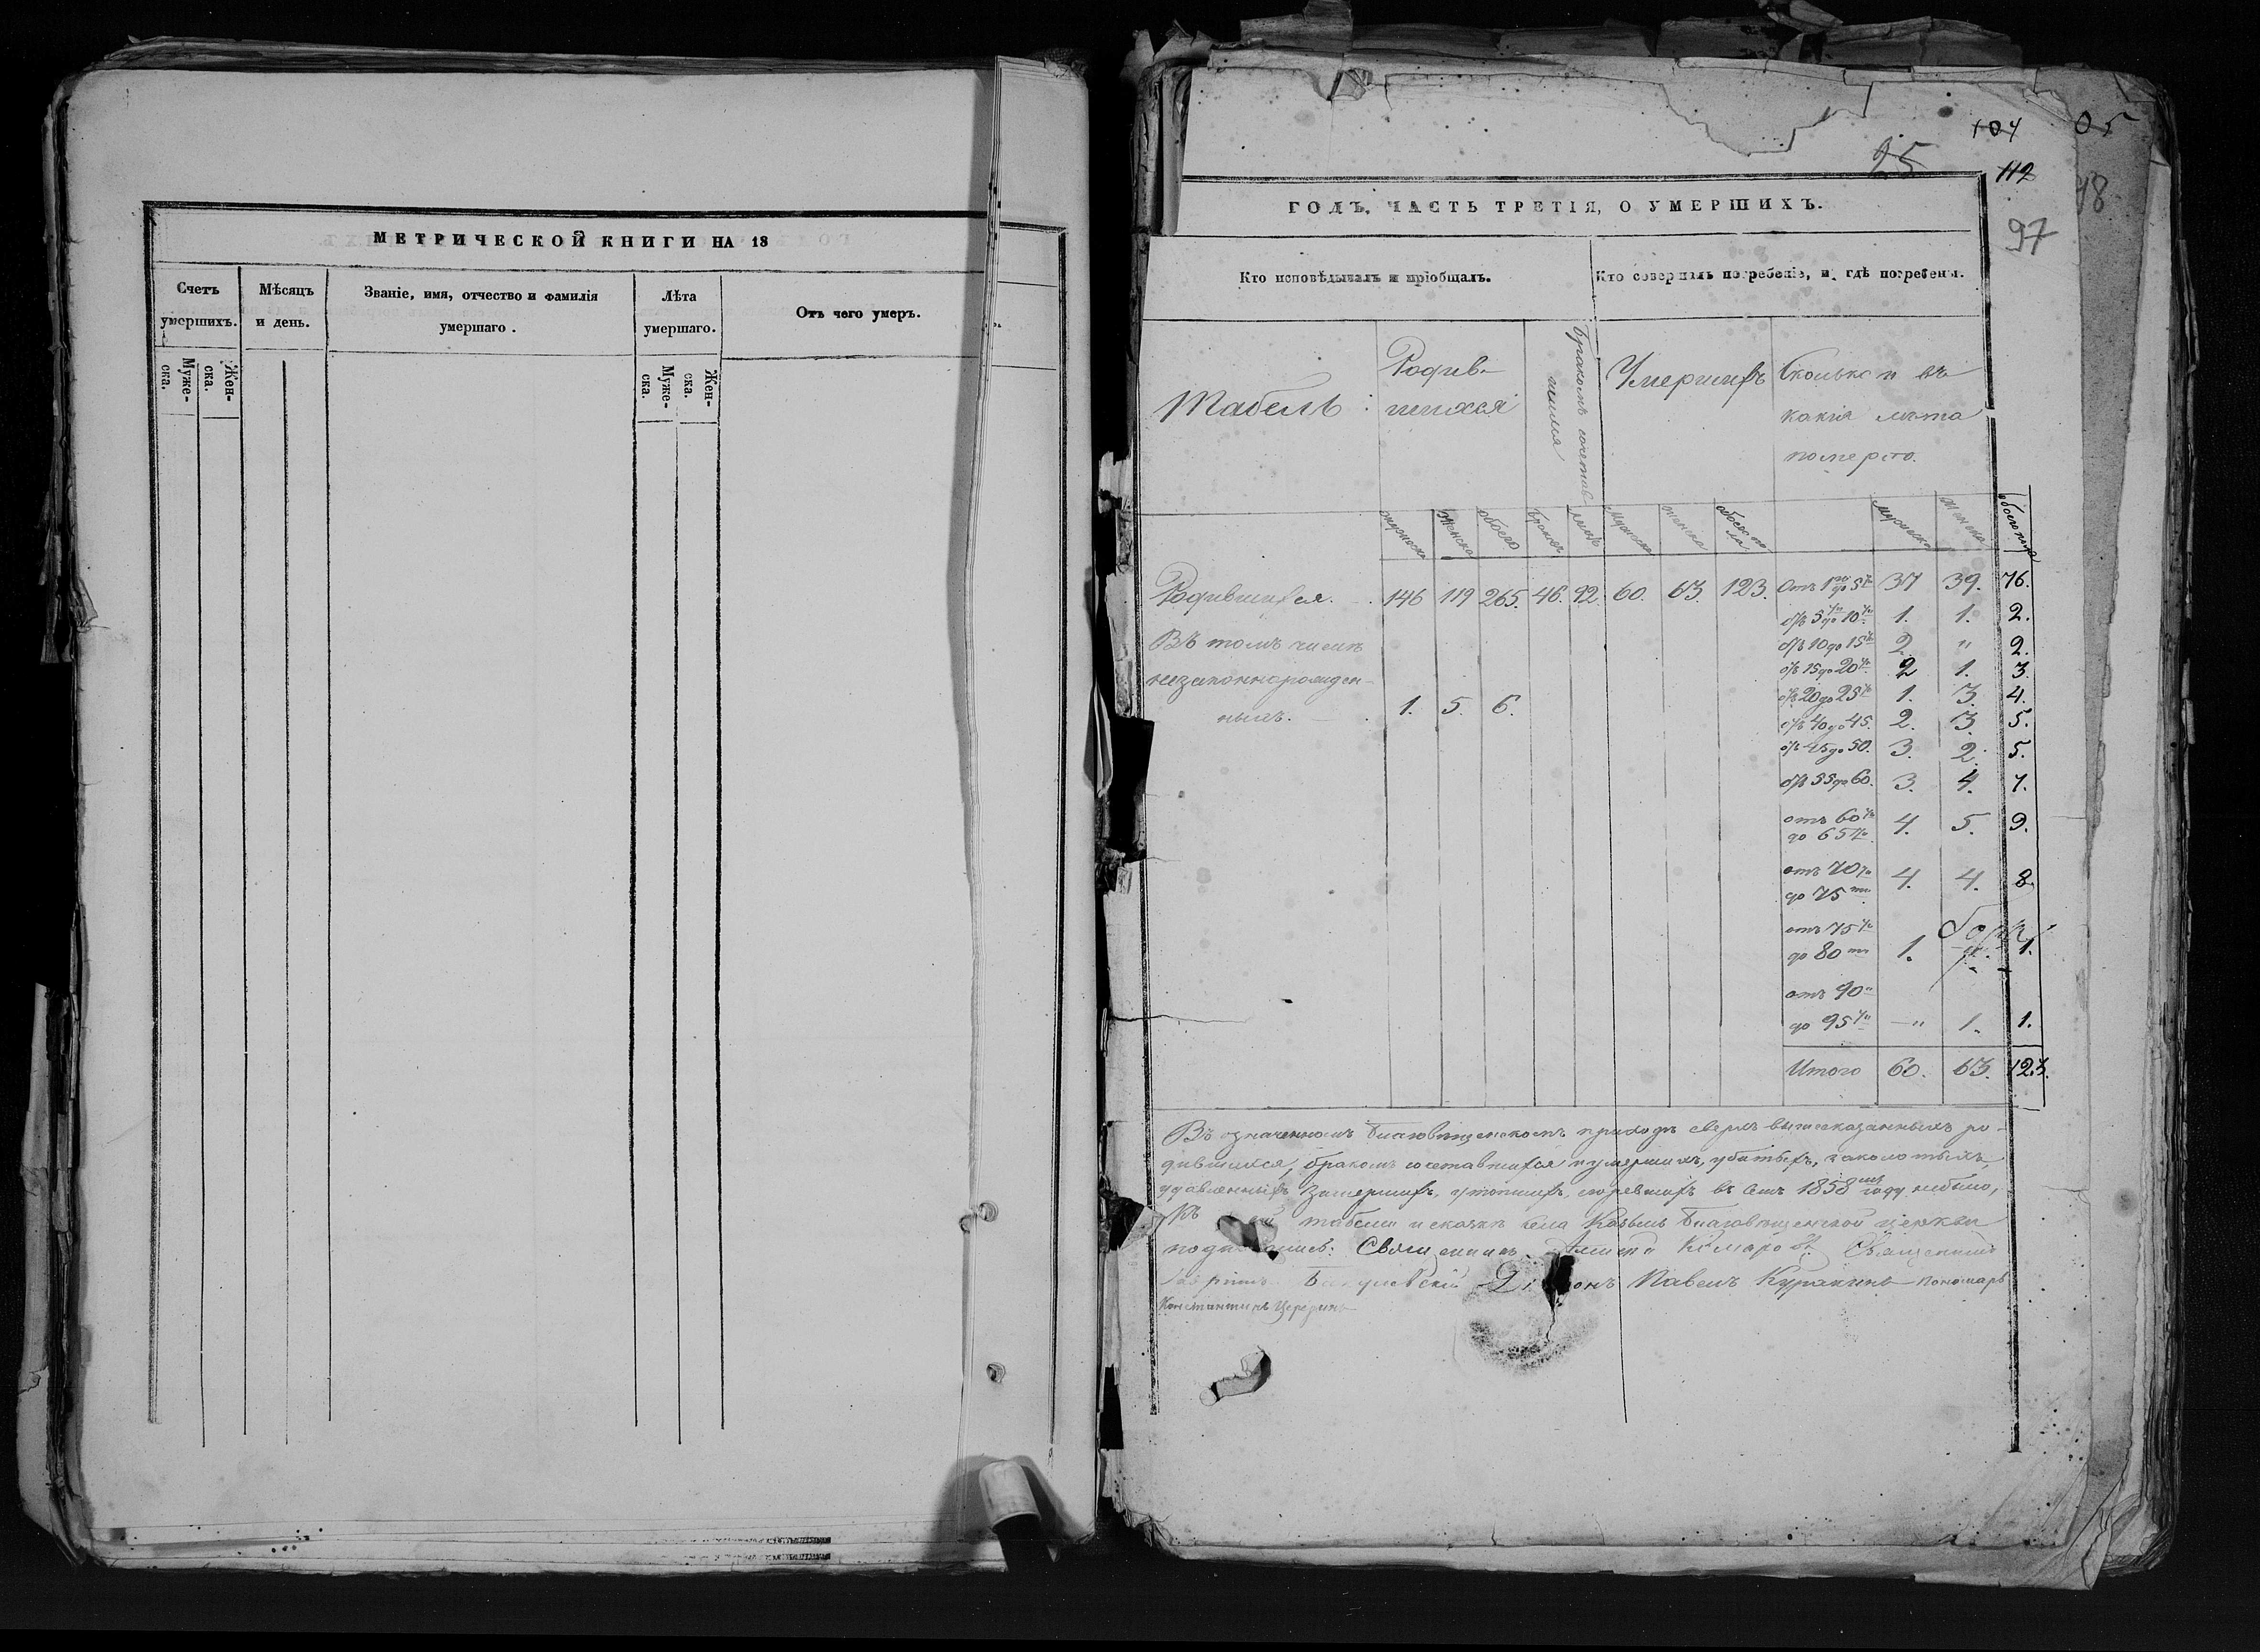 МЕТРИЧЕСКОЙ КНИГИ НА 18
Счетъ умершихъ.
Мѣсяцъ и день.
Званіе, имя, отчество и фамилія умершаго.
Лѣта умершаго.
Отъ чего умеръ.
Муже-ска.
Жен-ска.
Муже-ска.
Жен-ска.
104
05
25
112
98
97
ГОДЪ, ЧАСТЬ ТРЕТІЯ, О УМЕРШИХЪ.
Кто исповѣдывалъ и пріобщалъ.
Кто совершалъ погребеніе, и гдѣ погребены.
Табель:
Родив-шихся
Бракомъ сочетав-шихся
Умершихъ
Сколько и въ какія лѣта померло.
мужеска
женска
обоего
браковъ
лицъ
мужеска
женска
обоего пола
мужеска
женска
обоего пола
Родившихся. 146 119 265. 46. 92. 60. 63. 123. Отъ 1го до 5ти 37 39. 76.
отъ 5ти до 10ти 1. 1. 2.
Въ томъ числѣ
отъ 10 до 15ти 2. " 2.
отъ 15 до 20ти 2 1. 3.
незаконнорожден-
отъ 20 до 25ти 1. 3. 4.
ныхъ. 1. 5. 6.
отъ 40 до 45. 2. 3. 5.
отъ 45 до 50. 3. 2. 5.
отъ 55 до 60. 3. 4. 7.
отъ 60ти до 65ти 4. 5. 9.
отъ 70ти до 75ти 4. 4. 8.
отъ 75ти до 80ти 1. 1.
отъ 90 до 95ти — " 1. 1.
Итого 60. 63. 123.
Въ означенномъ Благовѣщенскомъ приходѣ сверхъ вышесказанныхъ ро-
дившихся, бракомъ сочетавшихся и умершихъ, убитыхъ, заколотыхъ,
удавленныхъ, замершихъ, утопшихъ, сгоревшихъ въ семъ 1858мъ году небыло,
Къ табели и сказкѣ села Благовѣщенской церкви
Священникъ Комаровъ Священникъ
Діаконъ Павелъ Куракинъ Пономарь
Константинъ